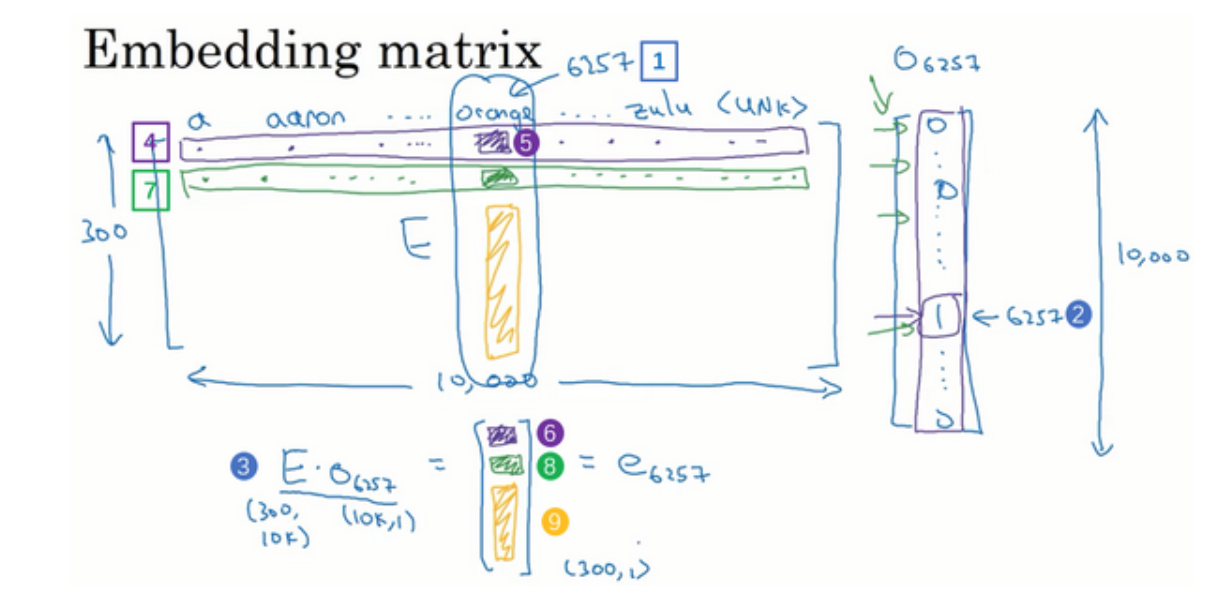 Embedding matrix
6257 1
O6257
a aaron ..... orange ..... zulu <UNK>
4
5
7
300
E
10,000
0
0
1
6257 2
0
10,000
3 E · O6257 = = e6257
6
8
9
(300, 10K)
(10K,1)
(300,1)